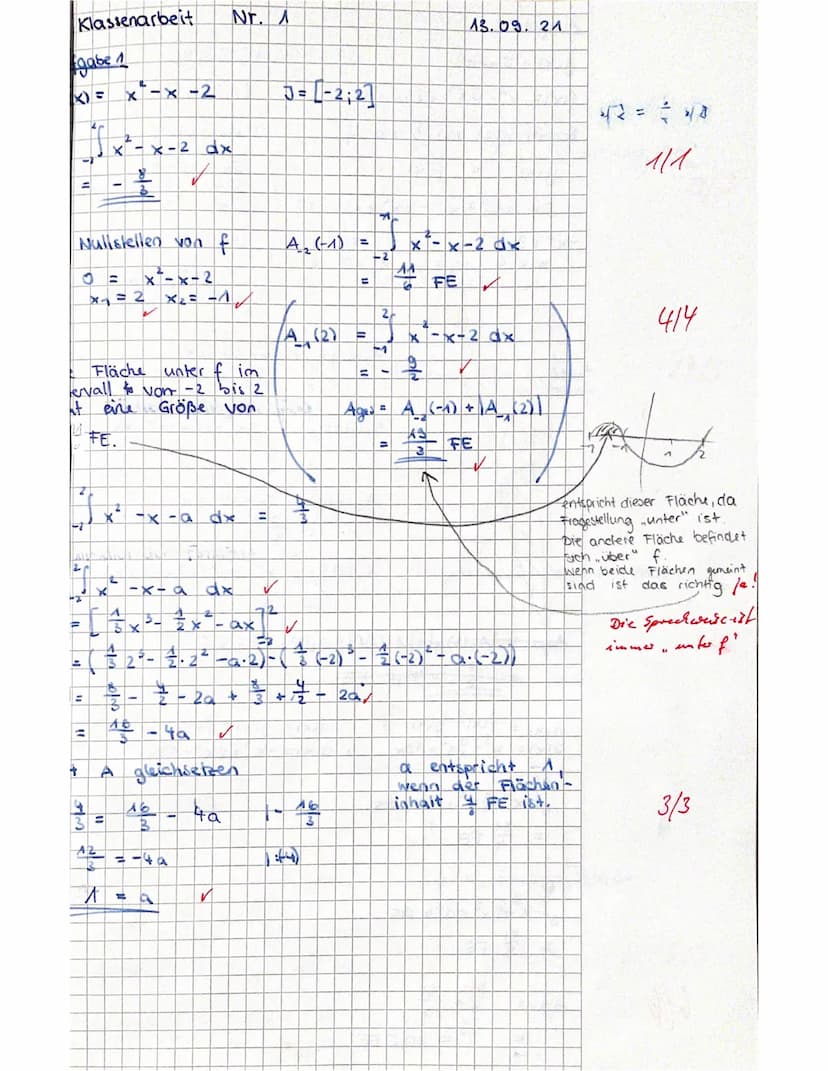 Klassenarbeit Nr. 1 13.09.21
gabe 1
x) = x² - x - 2 J = [-2; 2]
1/1
∫ x² - x - 2 dx
= - 8/3 ✓
Nullstellen von f A₋₂(-1) = ∫₋₂⁻¹ x² - x - 2 dx
0 = x² - x - 2 = 11/6 FE ✓
x₁ = 2 x₂ = -1 ✓
✓
4/4
A₋₁(2) = ∫₋₁² x² - x - 2 dx
= - 9/2 ✓
Fläche unter f im
ervall von -2 bis 2
t eine Größe von
FE.
Ages = A₋₂(-1) + |A₋₁(2)|
= 19/3 FE
✓
1 2
entspricht dieser Fläche, da
Fragestellung „unter" ist.
Die andere Fläche befindet
sich „über" f.
Wenn beide Flächen gemeint
sind ist das richtig ja!
Die Sprechweise ist
immer „unter f"
∫ x² - x - a dx = 4/3
∫₋₂² x² - x - a dx ✓
= [1/3 x³ - 1/2 x² - ax]₋₂² ✓
= (1/3 2³ - 1/2 · 2² - a·2) - (1/3 (-2)³ - 1/2 (-2)² - a·(-2))
= 8/3 - 4/2 - 2a + 8/3 + 4/2 - 2a ✓
= 16/3 - 4a ✓
t A gleichsetzen
4/3 = 16/3 - 4a | - 16/3
12/3 = -4a | :(-4)
1 = a ✓
a entspricht 1,
wenn der Flächen-
inhalt 4/3 FE ist.
3/3